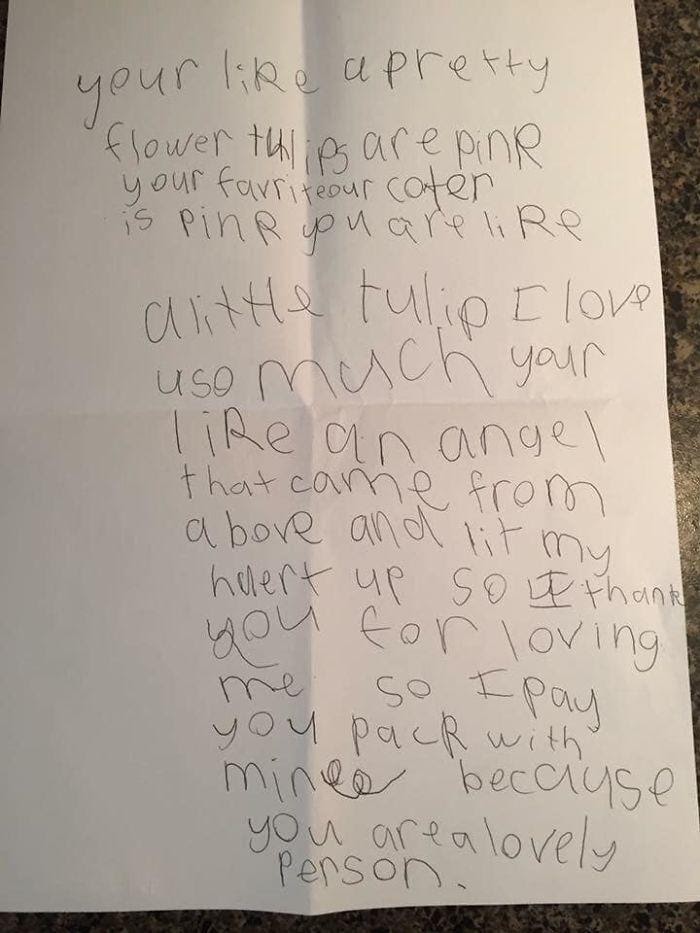 your like a pretty
flower tulips are pink
your favriteour coler
is pink you are like
a little tulip I love
u so much your
like an angel
that came from
above and lit my
huert up so I thank
you for loving
me so I pay
you pack with
mine because
you are a lovely
person.